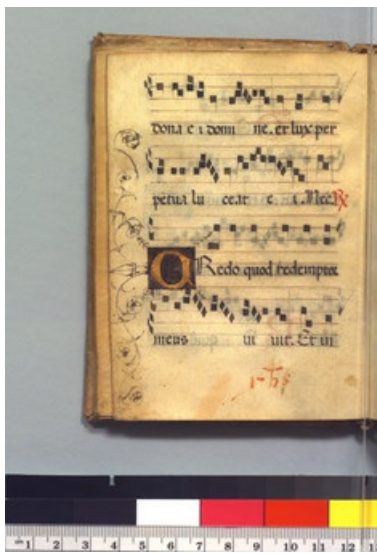 dona e i domi ne. et lux per
petua lu ceat e i. Nec. ℟
CRedo quod redemptor
meus ui uit. Et in
1 2 3 4 5 6 7 8 9 10 11 12